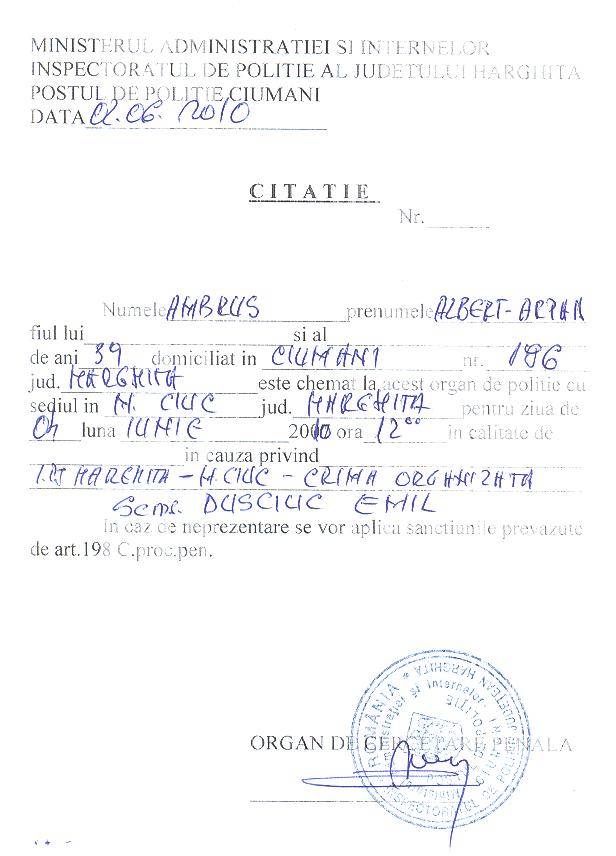 MINISTERUL ADMINISTRATIEI SI INTERNELOR
INSPECTORATUL DE POLITIE AL JUDETULUI HARGHITA
POSTUL DE POLITIE CIUMANI
DATA 02.06.2010
CITATIE
Nr.
Numele AMBRUS prenumele ALBERT-ARPAN
fiul lui si al
de ani 39 domiciliat in CIUMANI nr. 196
jud. HARGHITA este chemat la acest organ de politie cu
sediul in M. CIUC jud. HARGHITA pentru ziua de
luna IUNIE ora 12⁰⁰ in calitate de
in cauza privind
IPJ HARGHITA - M.CIUC - CRIMA ORGANIZATA
DUSCIUC EMIL
In caz de neprezentare se vor aplica sanctiunile prevazute
de art.198 C.proc.pen.
ORGAN DE CERCETARE PENALA
ROMÂNIA